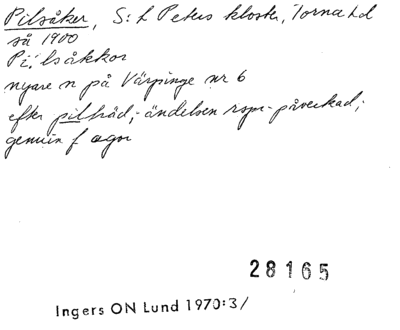 Pilsåker, S:t Peters kloster, Torna hd
så 1900
Pi:'lsåkkor
nyare n på Värpinge nr 6
efter pilträd; ändelsen rspr-påverkad;
genuin f ågor
28165
Ingers ON Lund 1970:3/